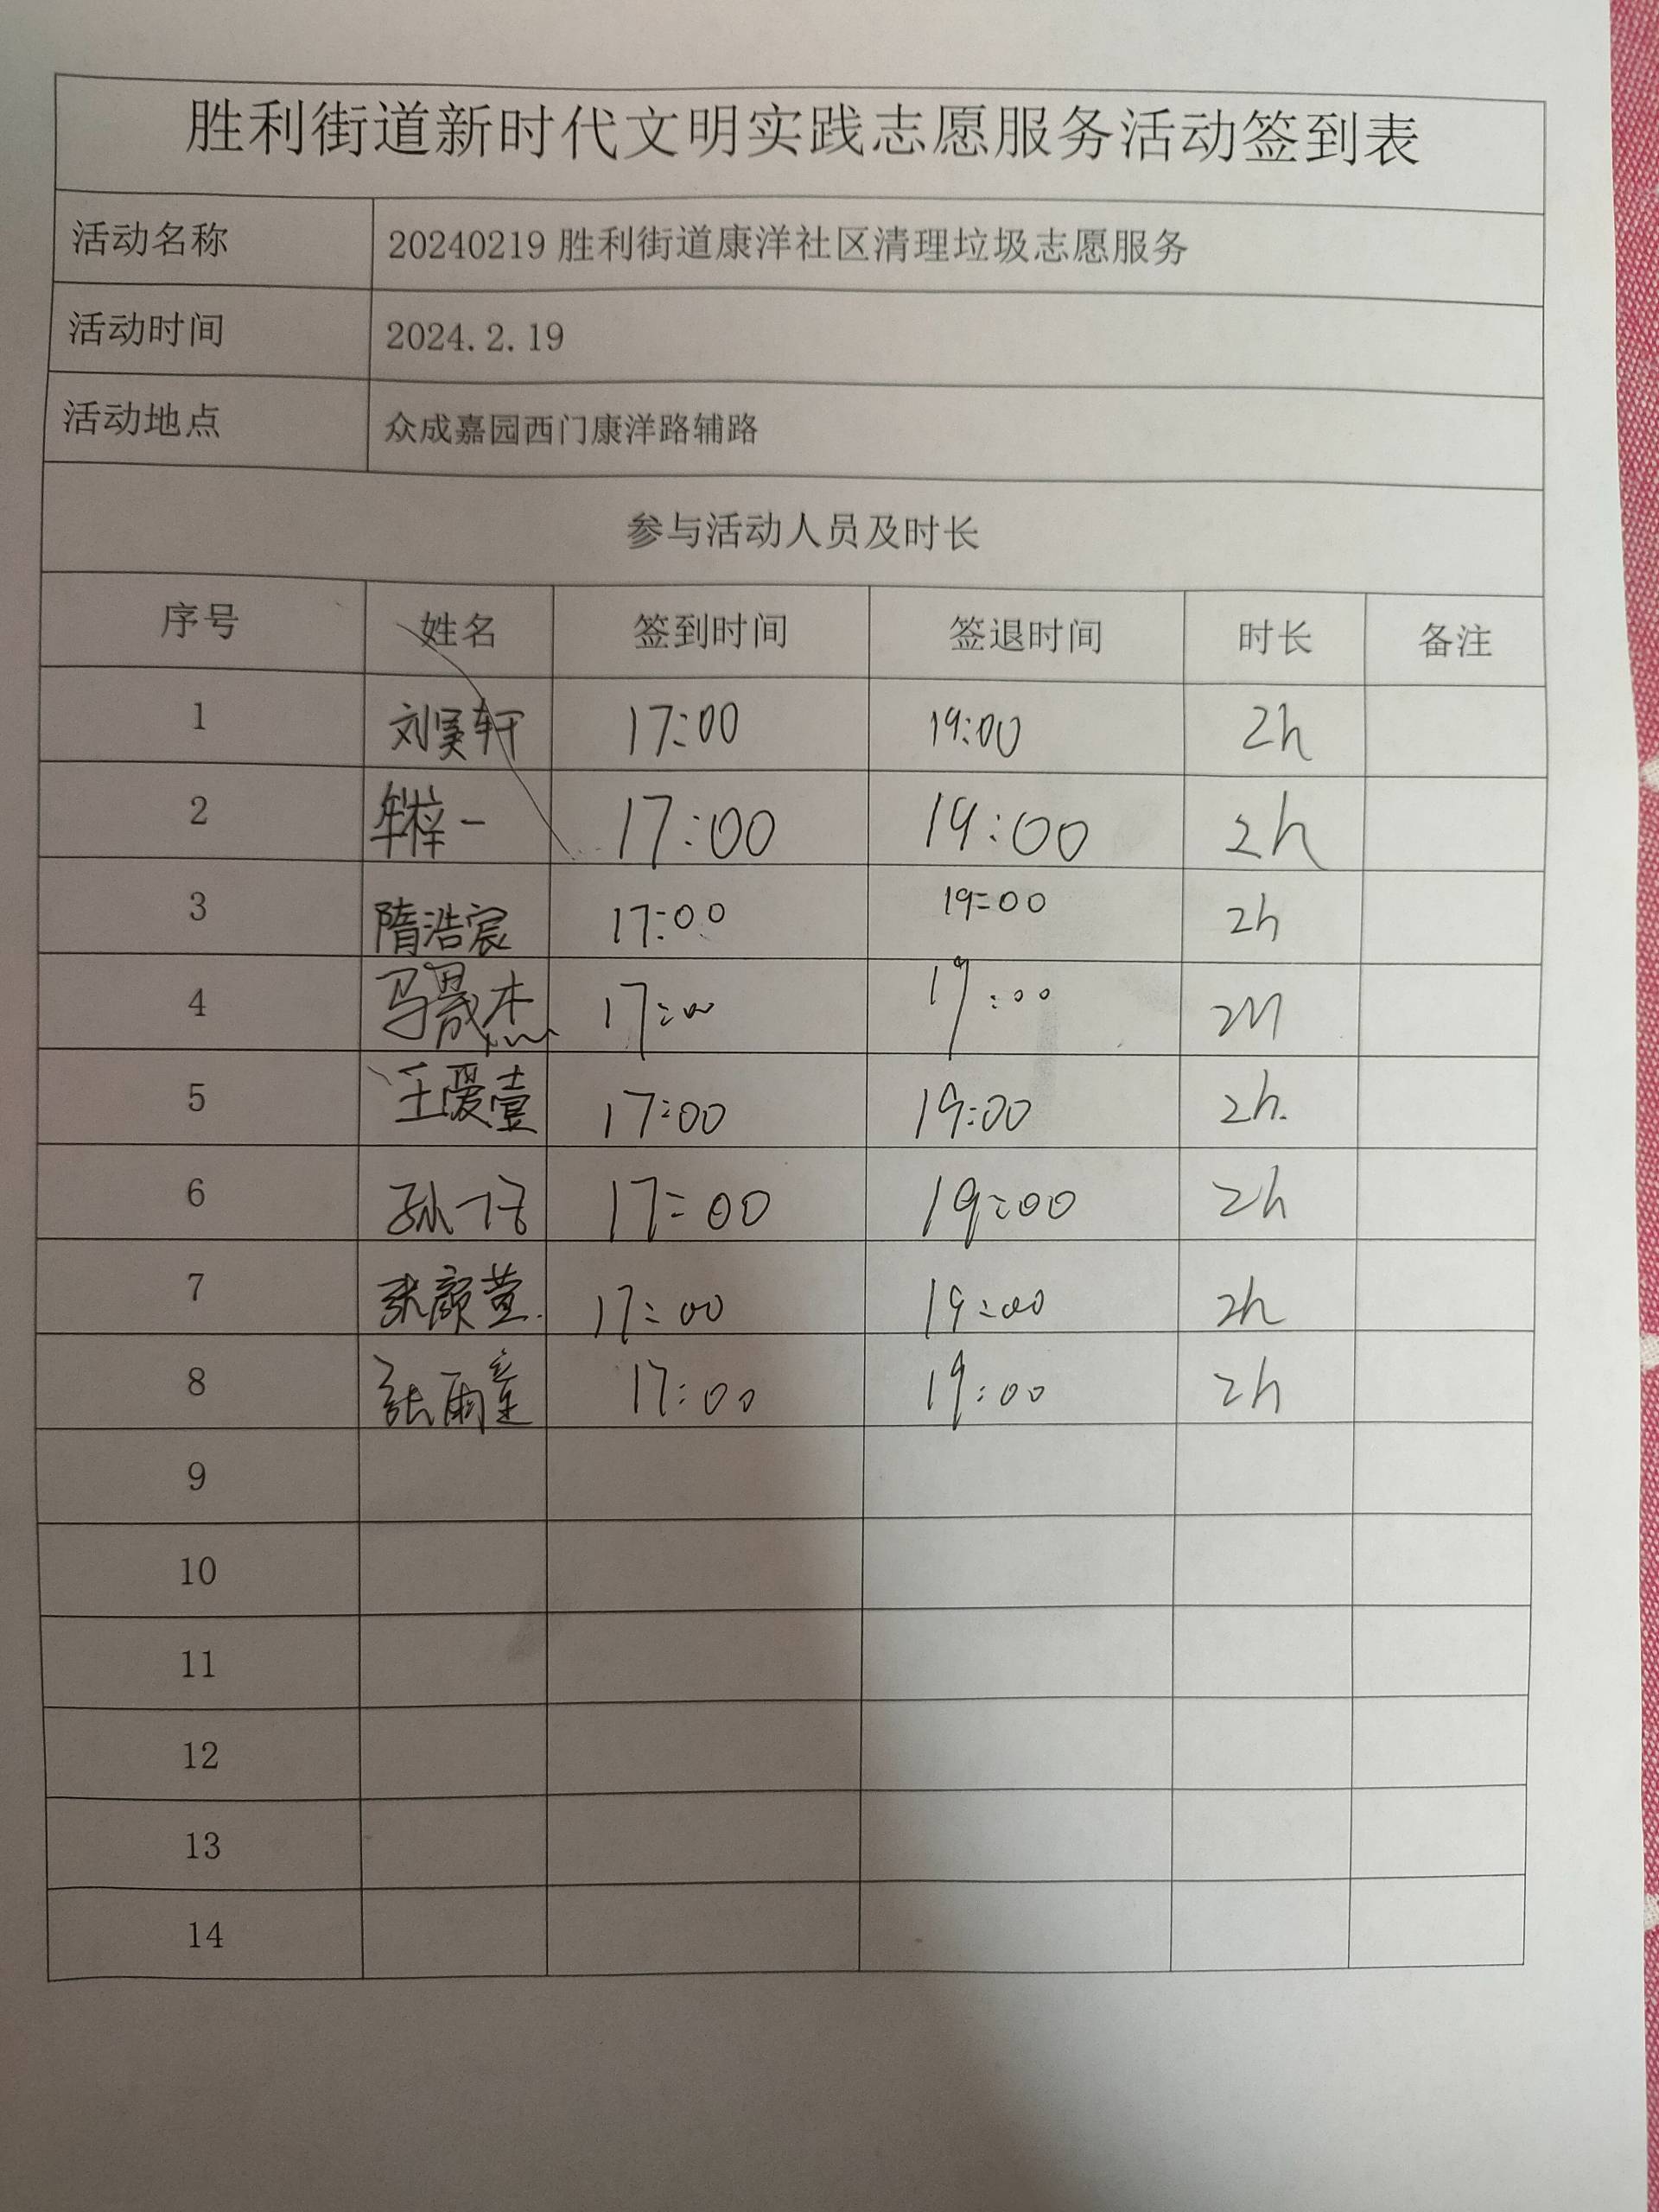 胜利街道新时代文明实践志愿服务活动签到表
活动名称 20240219 胜利街道康洋社区清理垃圾志愿服务
活动时间 2024.2.19
活动地点 众成嘉园西门康洋路辅路
参与活动人员及时长
序号 姓名 签到时间 签退时间 时长 备注
1 刘昊轩 17:00 19:00 2h
2 牟梓一 17:00 19:00 2h
3 隋浩宸 17:00 19:00 2h
4 马晟杰 17:00 19:00 2h
5 王瑷壹 17:00 19:00 2h.
6 孙一 17:00 19:00 2h
7 张颜萱. 17:00 19:00 2h
8 张雨童 17:00 19:00 2h
9
10
11
12
13
14